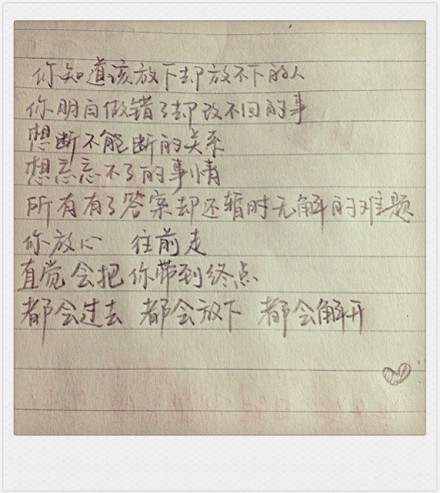 你知道该放下却放不下的人
你明白做错了却改不回的事
想断不能断的关系
想忘忘不了的事情
所有有了答案却还暂时无解的难题
你放心 往前走
直觉会把你带到终点
都会过去 都会放下 都会解开